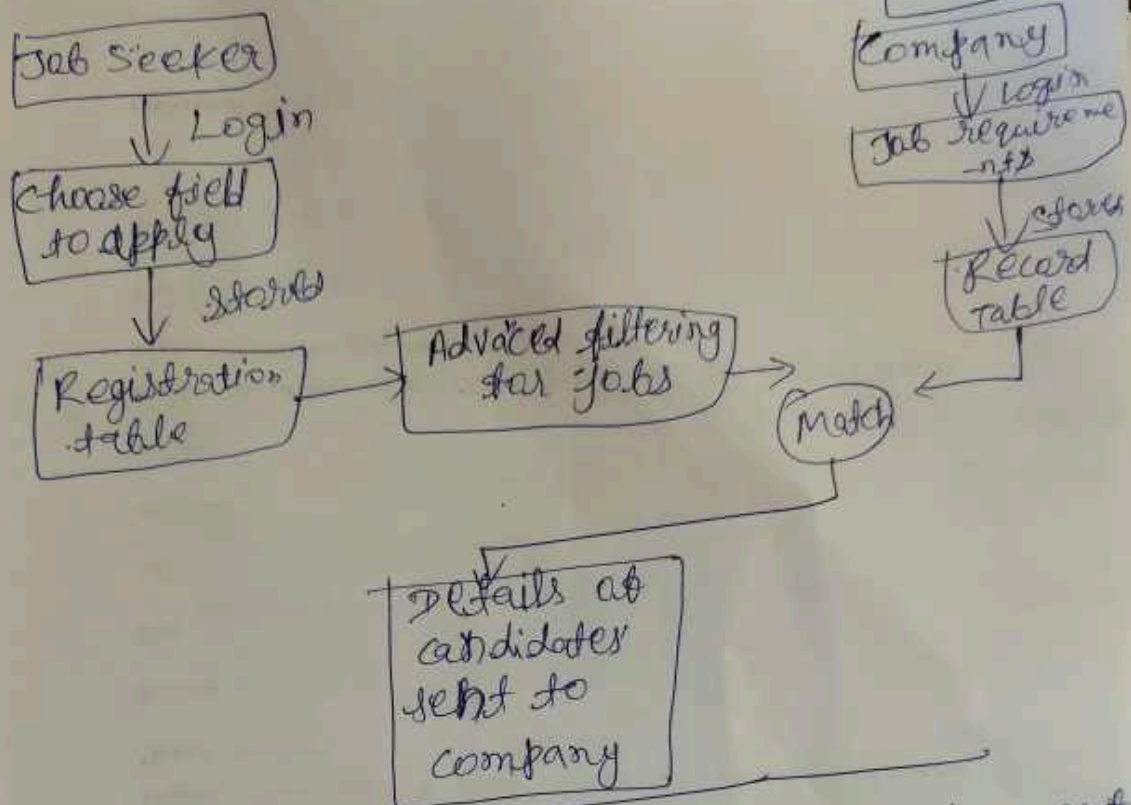 Job Seeker
Login
Choose field
to apply
stored
Registration
table
Advaced filtering
for jobs
Company
Login
Job requireme
-nts
stores
Record
Table
Match
Details of
candidates
sent to
company